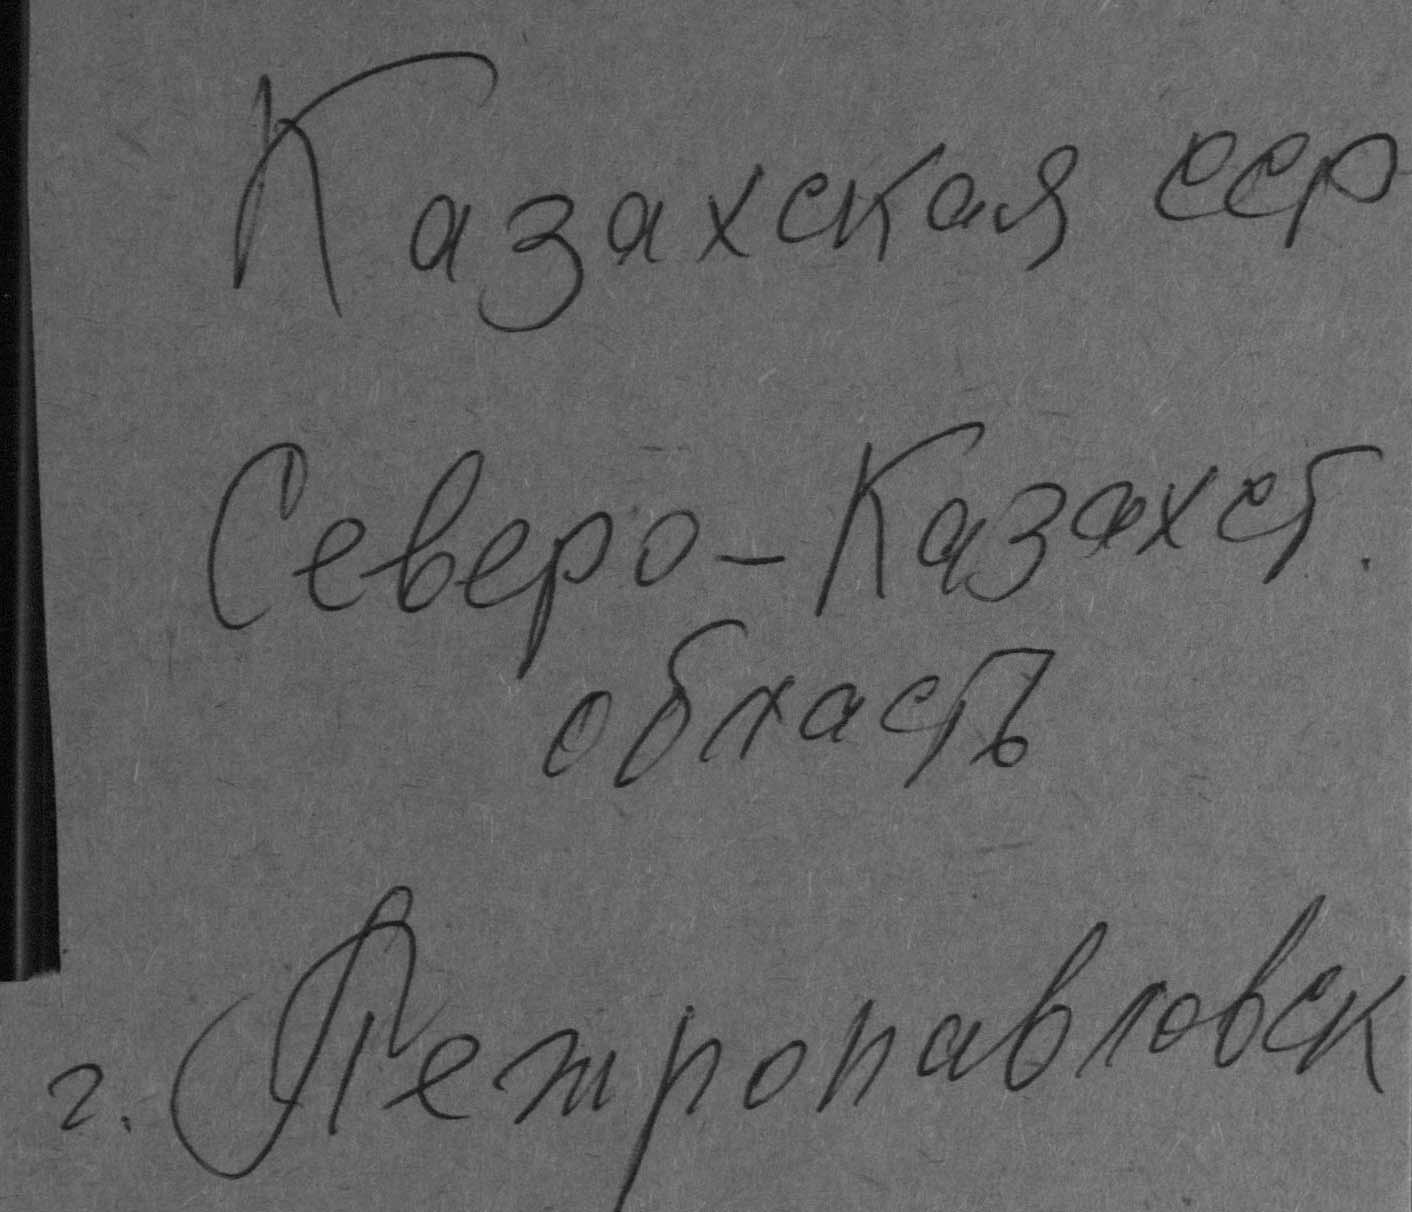 Казахская сср
Северо-Казахст.
область
г. Петропавловск